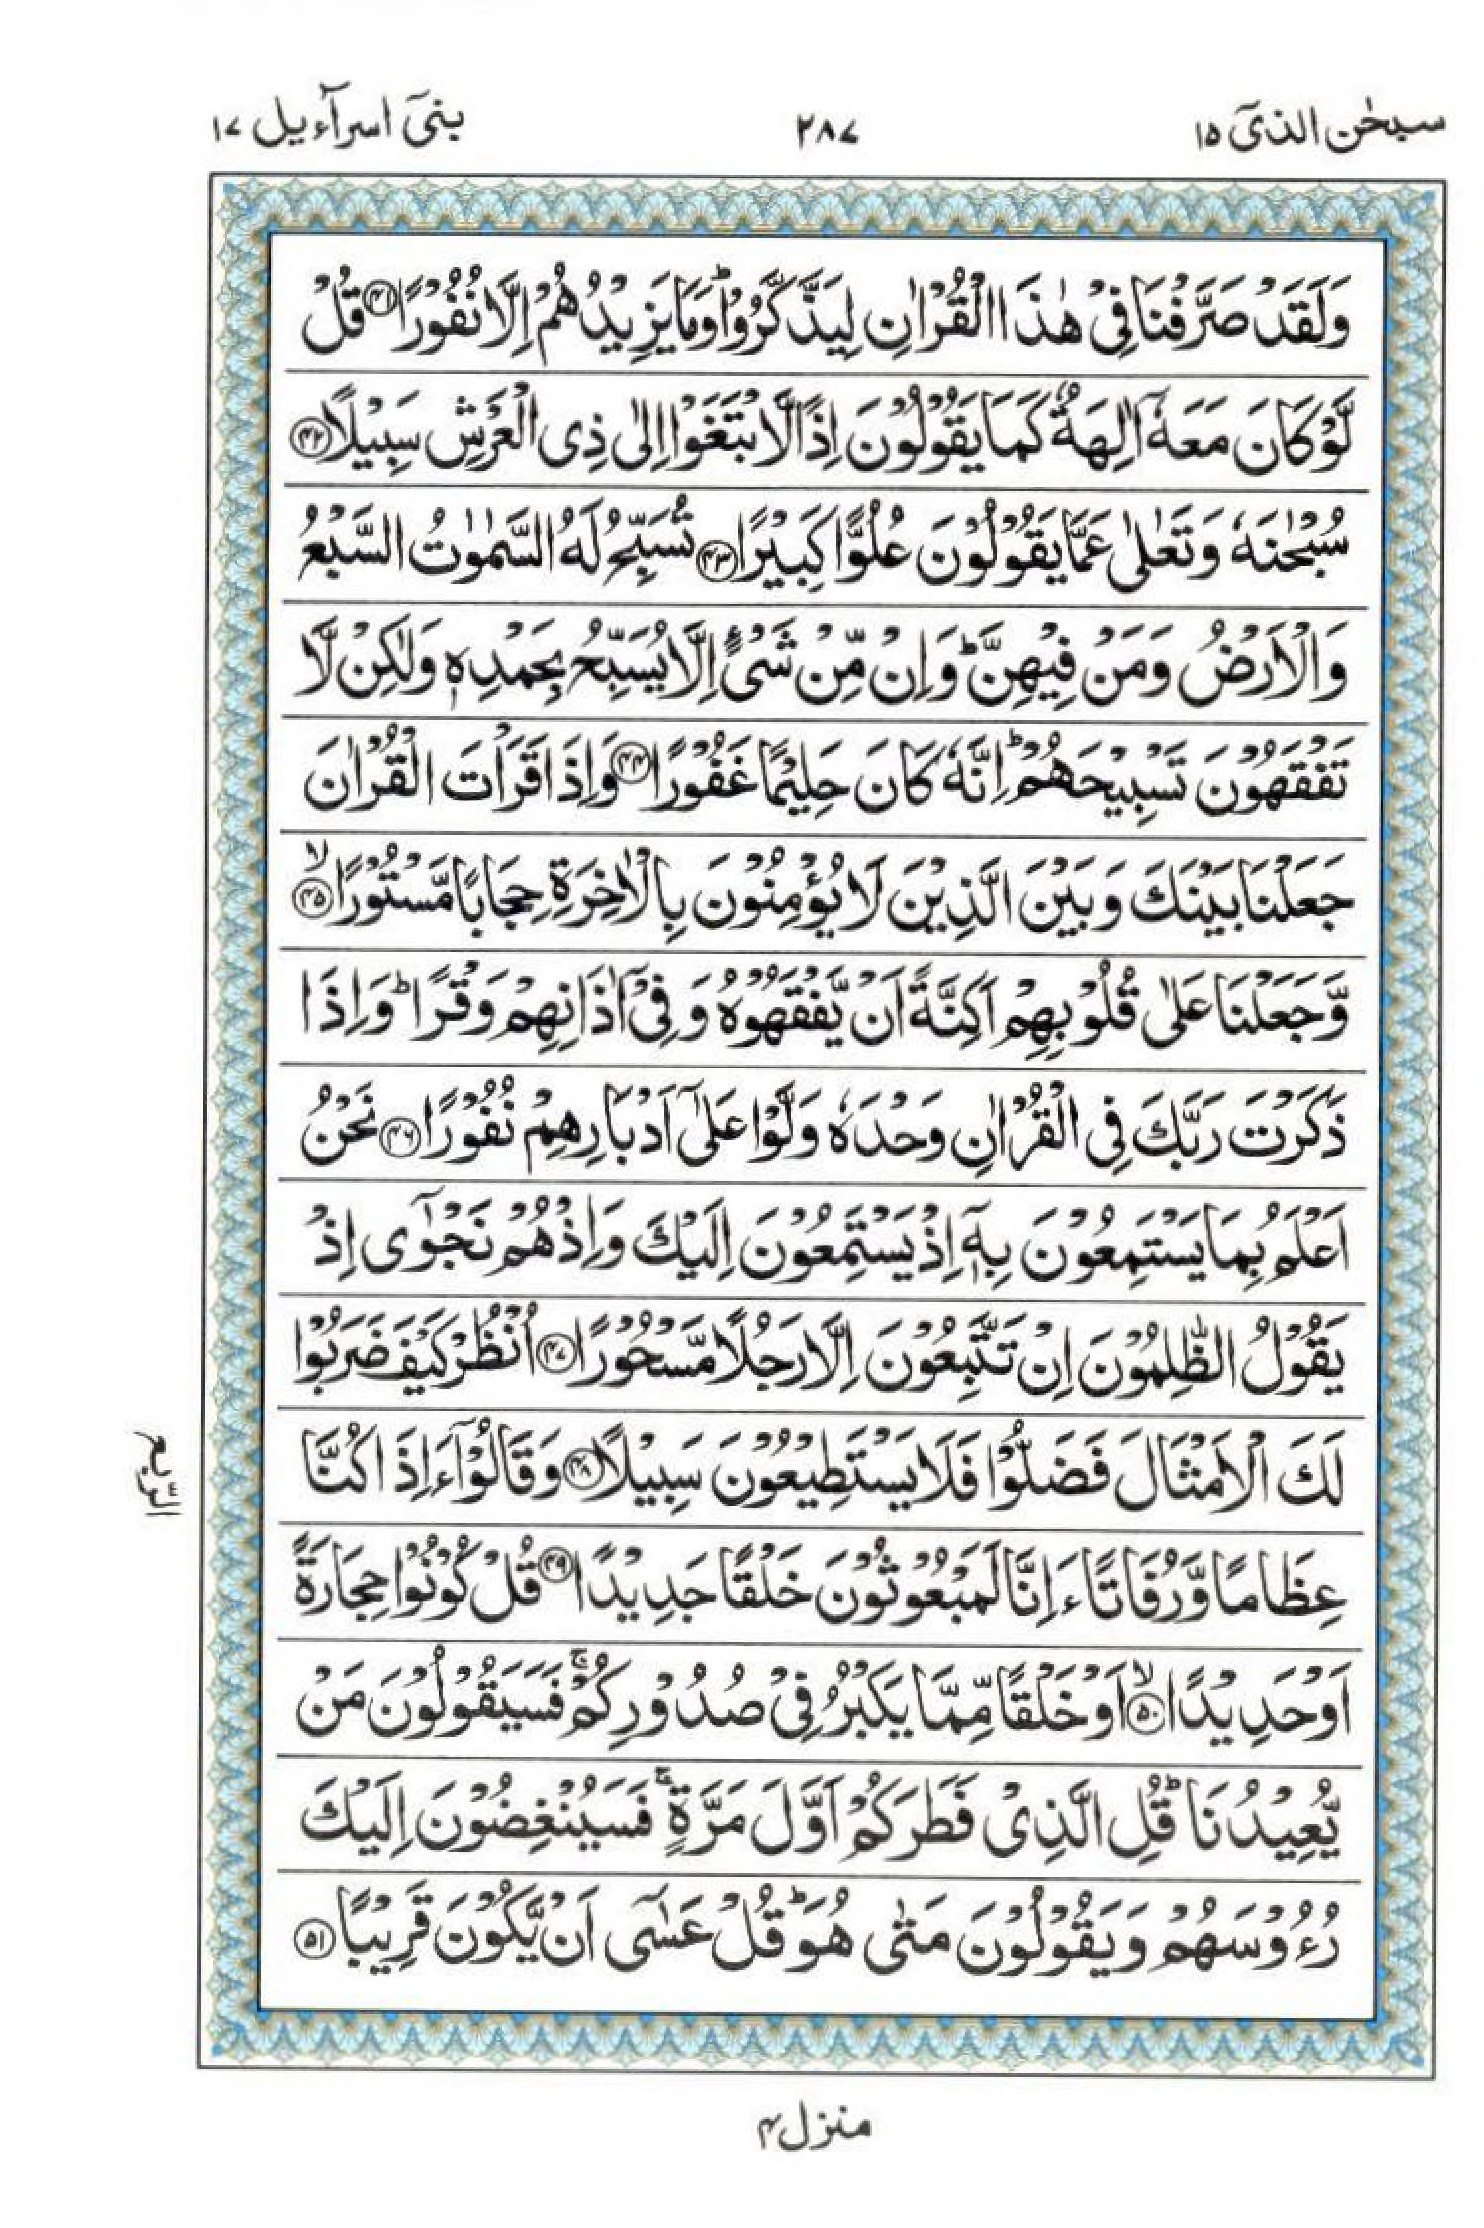 سبحٰن الذیٓ ۱۵
۲۸۷
بنیٓ اسرآءیل ۱۷
وَلَقَدْ صَرَّفْنَا فِیْ هٰذَا الْقُرْاٰنِ لِیَذَّكَّرُوْاؕ وَمَا یَزِیْدُهُمْ اِلَّا نُفُوْرًا ﴿۴۱﴾ قُلْ
لَّوْ كَانَ مَعَهٗۤ اٰلِهَةٌ كَمَا یَقُوْلُوْنَ اِذًا لَّابْتَغَوْا اِلٰی ذِی الْعَرْشِ سَبِیْلًا ﴿۴۲﴾
سُبْحٰنَهٗ وَتَعٰلٰی عَمَّا یَقُوْلُوْنَ عُلُوًّا كَبِیْرًا ﴿۴۳﴾ تُسَبِّحُ لَهُ السَّمٰوٰتُ السَّبْعُ
وَالْاَرْضُ وَمَنْ فِیْهِنَّؕ وَاِنْ مِّنْ شَیْءٍ اِلَّا یُسَبِّحُ بِحَمْدِهٖ وَلٰكِنْ لَّا
تَفْقَهُوْنَ تَسْبِیْحَهُمْؕ اِنَّهٗ كَانَ حَلِیْمًا غَفُوْرًا ﴿۴۴﴾ وَاِذَا قَرَاْتَ الْقُرْاٰنَ
جَعَلْنَا بَیْنَكَ وَبَیْنَ الَّذِیْنَ لَا یُؤْمِنُوْنَ بِالْاٰخِرَةِ حِجَابًا مَّسْتُوْرًاۙ ﴿۴۵﴾
وَّجَعَلْنَا عَلٰی قُلُوْبِهِمْ اَكِنَّةً اَنْ یَّفْقَهُوْهُ وَفِیْۤ اٰذَانِهِمْ وَقْرًاؕ وَاِذَا
ذَكَرْتَ رَبَّكَ فِی الْقُرْاٰنِ وَحْدَهٗ وَلَّوْا عَلٰۤی اَدْبَارِهِمْ نُفُوْرًا ﴿۴۶﴾ نَحْنُ
اَعْلَمُ بِمَا یَسْتَمِعُوْنَ بِهٖۤ اِذْ یَسْتَمِعُوْنَ اِلَیْكَ وَاِذْ هُمْ نَجْوٰۤی اِذْ
یَقُوْلُ الظّٰلِمُوْنَ اِنْ تَتَّبِعُوْنَ اِلَّا رَجُلًا مَّسْحُوْرًا ﴿۴۷﴾ اُنْظُرْ كَیْفَ ضَرَبُوْا
لَكَ الْاَمْثَالَ فَضَلُّوْا فَلَا یَسْتَطِیْعُوْنَ سَبِیْلًا ﴿۴۸﴾ وَقَالُوْۤا ءَاِذَا كُنَّا
الرّبع
عِظَامًا وَّرُفَاتًا ءَاِنَّا لَمَبْعُوْثُوْنَ خَلْقًا جَدِیْدًا ﴿۴۹﴾ قُلْ كُوْنُوْا حِجَارَةً
اَوْ حَدِیْدًاۙ ﴿۵۰﴾ اَوْ خَلْقًا مِّمَّا یَكْبُرُ فِیْ صُدُوْرِكُمْۚ فَسَیَقُوْلُوْنَ مَنْ
یُّعِیْدُنَاؕ قُلِ الَّذِیْ فَطَرَكُمْ اَوَّلَ مَرَّةٍۚ فَسَیُنْغِضُوْنَ اِلَیْكَ
رُءُوْسَهُمْ وَیَقُوْلُوْنَ مَتٰی هُوَؕ قُلْ عَسٰۤی اَنْ یَّكُوْنَ قَرِیْبًا ﴿۵۱﴾
منزل ۴